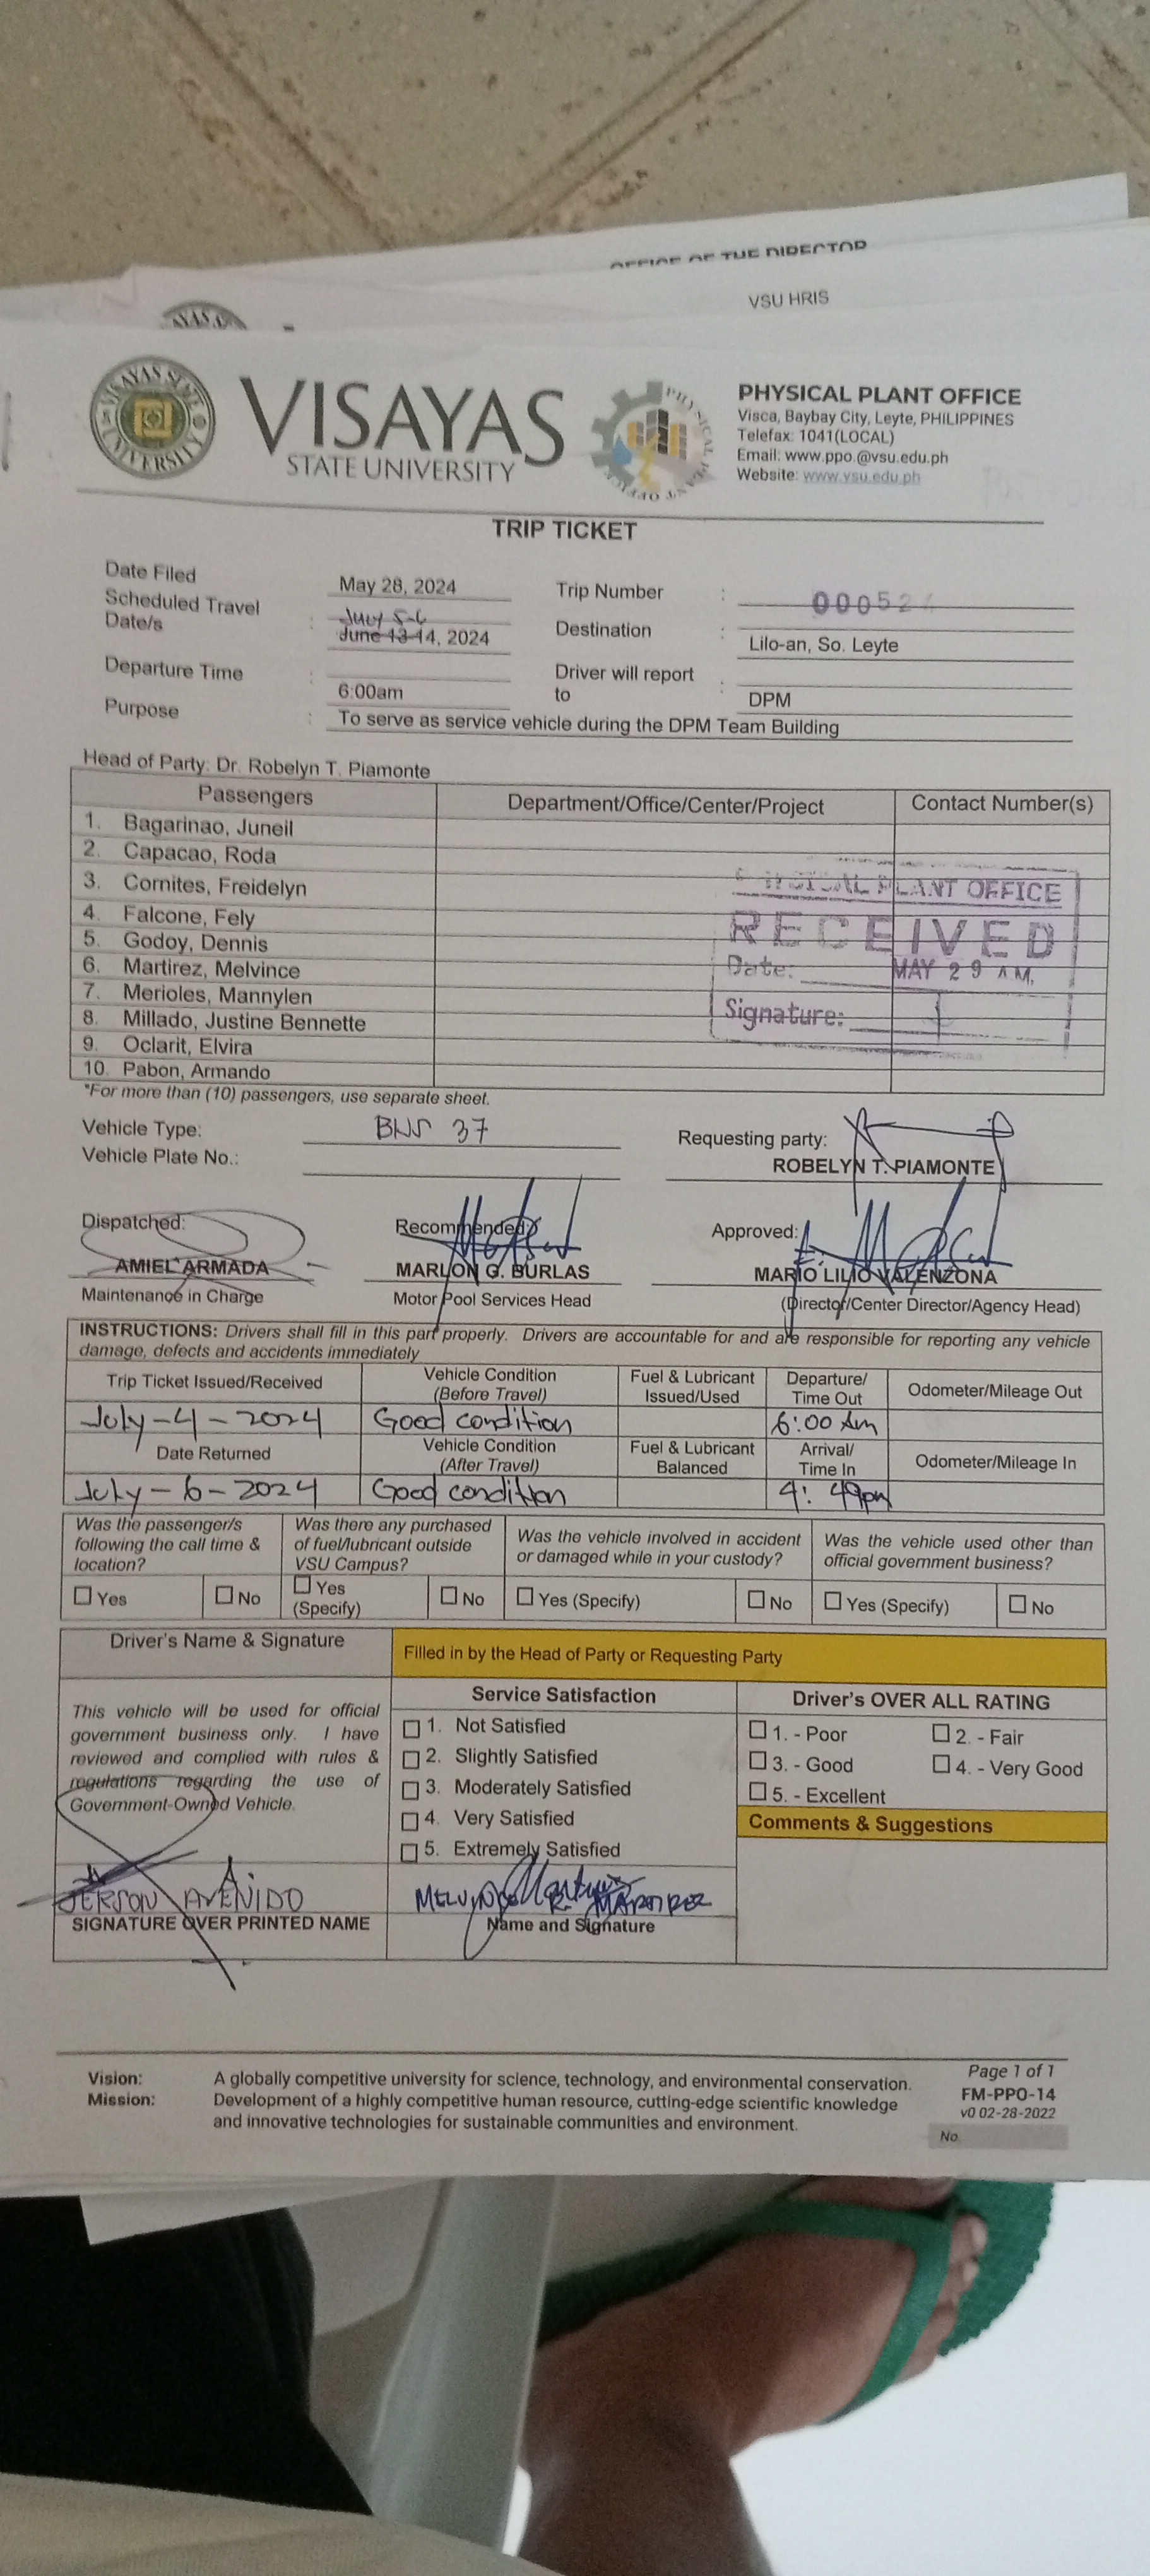 OFFICE OF THE DIRECTOR
VSU HRIS
VISAYAS STATE UNIVERSITY
VISAYAS
STATE UNIVERSITY
PHYSICAL PLANT OFFICE
PHYSICAL PLANT OFFICE
Visca, Baybay City, Leyte, PHILIPPINES
Telefax: 1041(LOCAL)
Email: www.ppo.@vsu.edu.ph
Website: www.vsu.edu.ph
TRIP TICKET
Date Filed May 28, 2024 Trip Number : 00052
Scheduled Travel Date/s : July 5-6 June 13-14, 2024 Destination : Lilo-an, So. Leyte
Departure Time : 6:00am Driver will report to : DPM
Purpose : To serve as service vehicle during the DPM Team Building
Head of Party: Dr. Robelyn T. Piamonte
Passengers Department/Office/Center/Project Contact Number(s)
1. Bagarinao, Juneil
2. Capacao, Roda
3. Cornites, Freidelyn
4. Falcone, Fely
5. Godoy, Dennis
6. Martirez, Melvince
7. Merioles, Mannylen
8. Millado, Justine Bennette
9. Oclarit, Elvira
10. Pabon, Armando
PHYSICAL PLANT OFFICE
RECEIVED
Date: MAY 29 A.M.
Signature:
*For more than (10) passengers, use separate sheet.
Vehicle Type: 37
Vehicle Plate No.:
Requesting party:
ROBELYN T. PIAMONTE
Dispatched: Recommended: Approved:
AMIEL ARMADA MARLON G. BURLAS MARIO LILIO VALENZONA
Maintenance in Charge Motor Pool Services Head (Director/Center Director/Agency Head)
INSTRUCTIONS: Drivers shall fill in this part properly. Drivers are accountable for and are responsible for reporting any vehicle
damage, defects and accidents immediately
Trip Ticket Issued/Received Vehicle Condition (Before Travel) Fuel & Lubricant Issued/Used Departure/ Time Out Odometer/Mileage Out
July-4-2024 Good condition 6:00 Am
Date Returned Vehicle Condition (After Travel) Fuel & Lubricant Balanced Arrival/ Time In Odometer/Mileage In
July-6-2024 Good condition 4:49pm
Was the passenger/s following the call time & location? Was there any purchased of fuel/lubricant outside VSU Campus? Was the vehicle involved in accident or damaged while in your custody? Was the vehicle used other than official government business?
Yes No Yes (Specify) No Yes (Specify) No Yes (Specify) No
Driver's Name & Signature
Filled in by the Head of Party or Requesting Party
Service Satisfaction Driver's OVER ALL RATING
This vehicle will be used for official
government business only. I have
reviewed and complied with rules &
regulations regarding the use of
Government-Owned Vehicle.
1. Not Satisfied
2. Slightly Satisfied
3. Moderately Satisfied
4. Very Satisfied
5. Extremely Satisfied
1. - Poor 2. - Fair
3. - Good 4. - Very Good
5. - Excellent
Comments & Suggestions
JERSON AVENIDO
SIGNATURE OVER PRINTED NAME
MELVINCE R. MARTIREZ
Name and Signature
Vision: A globally competitive university for science, technology, and environmental conservation.
Mission: Development of a highly competitive human resource, cutting-edge scientific knowledge
and innovative technologies for sustainable communities and environment.
Page 1 of 1
FM-PPO-14
v0 02-28-2022
No.